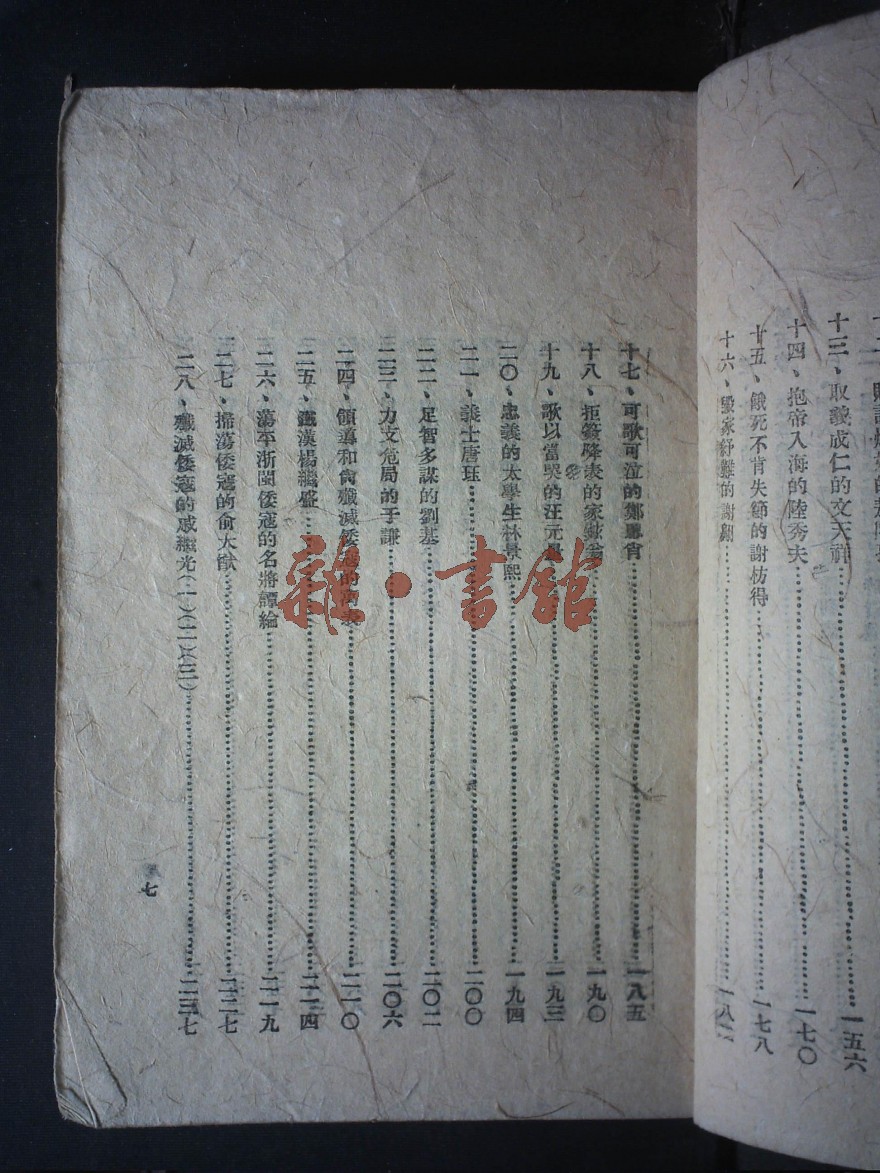 十三、取義成仁的文天祥……一五六
十四、抱帝入海的陸秀夫……一七〇
廿五、餓死不肯失節的謝枋得……一七八
十六、毀家紓難的謝翺……一八
十七、可歌可泣的鄭肖……一八五
十八、拒簽降表的家鉉翁……一九〇
十九、歌以當哭的汪元量……一九三
二〇、忠義的太學生林景熙……一九四
二一、義士唐珏……二〇〇
二二、足智多謀的劉基……二〇二
二三、力支危局的于謙……二〇六
二四、領導和尚殲滅倭寇的萬表……二一〇
二五、鐵漢楊繼盛……二一四
二六、蕩平浙閩倭寇的名將譚綸……二一九
二七、掃蕩倭寇的俞大猷……二二七
二八、殲滅倭寇的戚繼光(一)(二)(三)……二三七
七
雜·書館